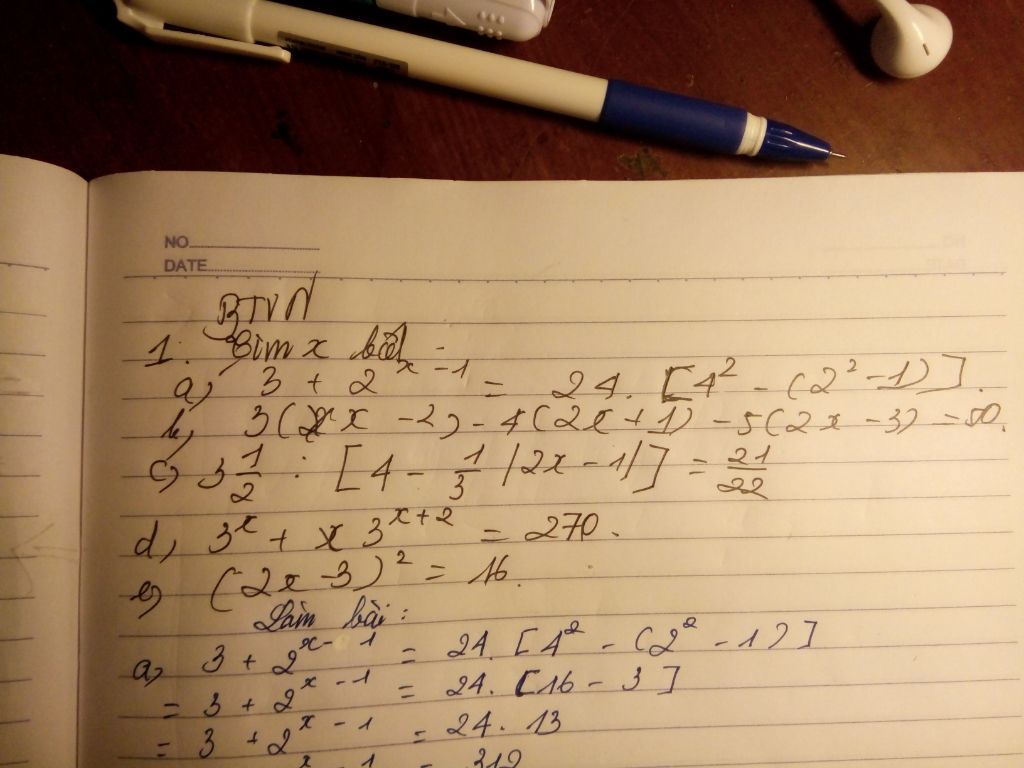 NO
DATE
BTVN
1. Tìm x biết:
a, 3 + 2^{x-1} = 24. [4^2 - (2^2 - 1)].
b, 3(x - 2) - 4(2x + 1) - 5(2x - 3) = 50.
c, 3 1/2 : [4 - 1/3 |2x - 1|] = 21/22
d, 3^x + 3^{x+2} = 270.
e, (2x - 3)^2 = 16.
Làm bài:
a, 3 + 2^{x-1} = 24. [4^2 - (2^2 - 1)]
= 3 + 2^{x-1} = 24. [16 - 3]
= 3 + 2^{x-1} = 24. 13
x - 1 = 312